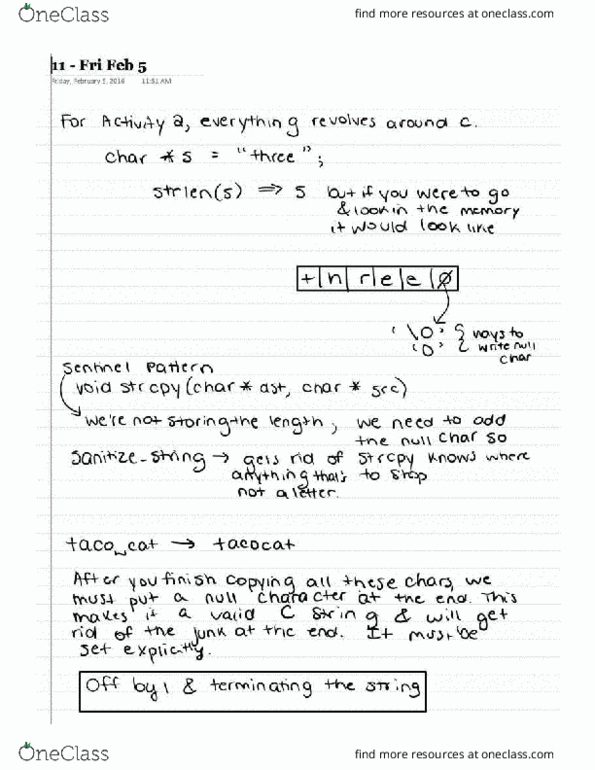 OneClass
find more resources at oneclass.com
11 - Fri Feb 5
Friday, February 5, 2016 11:51 AM
For Activity 2, everything revolves around C.
char * s = "three";
strlen(s) ⇒ 5 but if you were to go
& look in the memory
it would look like
t|h|r|e|e|0
'\0' { ways to
'0' { write null
char
Sentinel Pattern
(void strcpy(char * dst, char * src)
we're not storing the length, we need to add
the null char so
Sanitize-string → gets rid of strcpy knows where
anything that's to stop
not a letter.
taco_cat → tacocat
After you finish copying all these chars, we
must put a null character at the end. This
makes it a valid C string & will get
rid of the junk at the end. It must be
set explicitly.
Off by 1 & terminating the string
OneClass
find more resources at oneclass.com